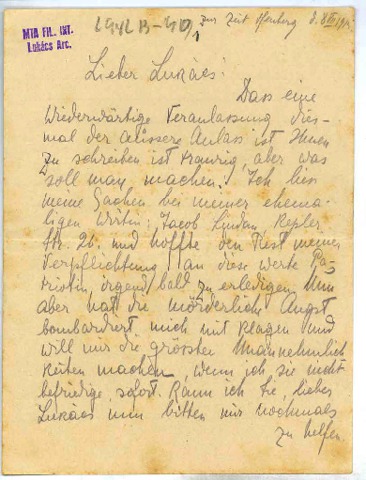 MTA FIL. INT.
Lukács Arc.
zur Zeit
Lieber Lukács!
Dass eine
Wiederwärtige Veranlassung dies-
mal der äussere Anlass ist Ihnen
zu schreiben ist traurig, aber was
soll man machen! Ich liess
meine Sachen bei meiner ehema-
ligen Wirtin: Jacob Lindau, Kepler
str. 26. und hoffte den Rest meiner
Verpflichtung an diese werte Pa-
triotin, irgend bald zu erledigen. Nun
aber hat die mörderliche Angst
bombardiert mich mit Klagen und
will mir die grössten Unannehmlich
keiten machen, wenn ich sie nicht
befriedige, sofort. Kann ich Sie, lieber
Lukács nun bitten mir nochmals
zu helfen.